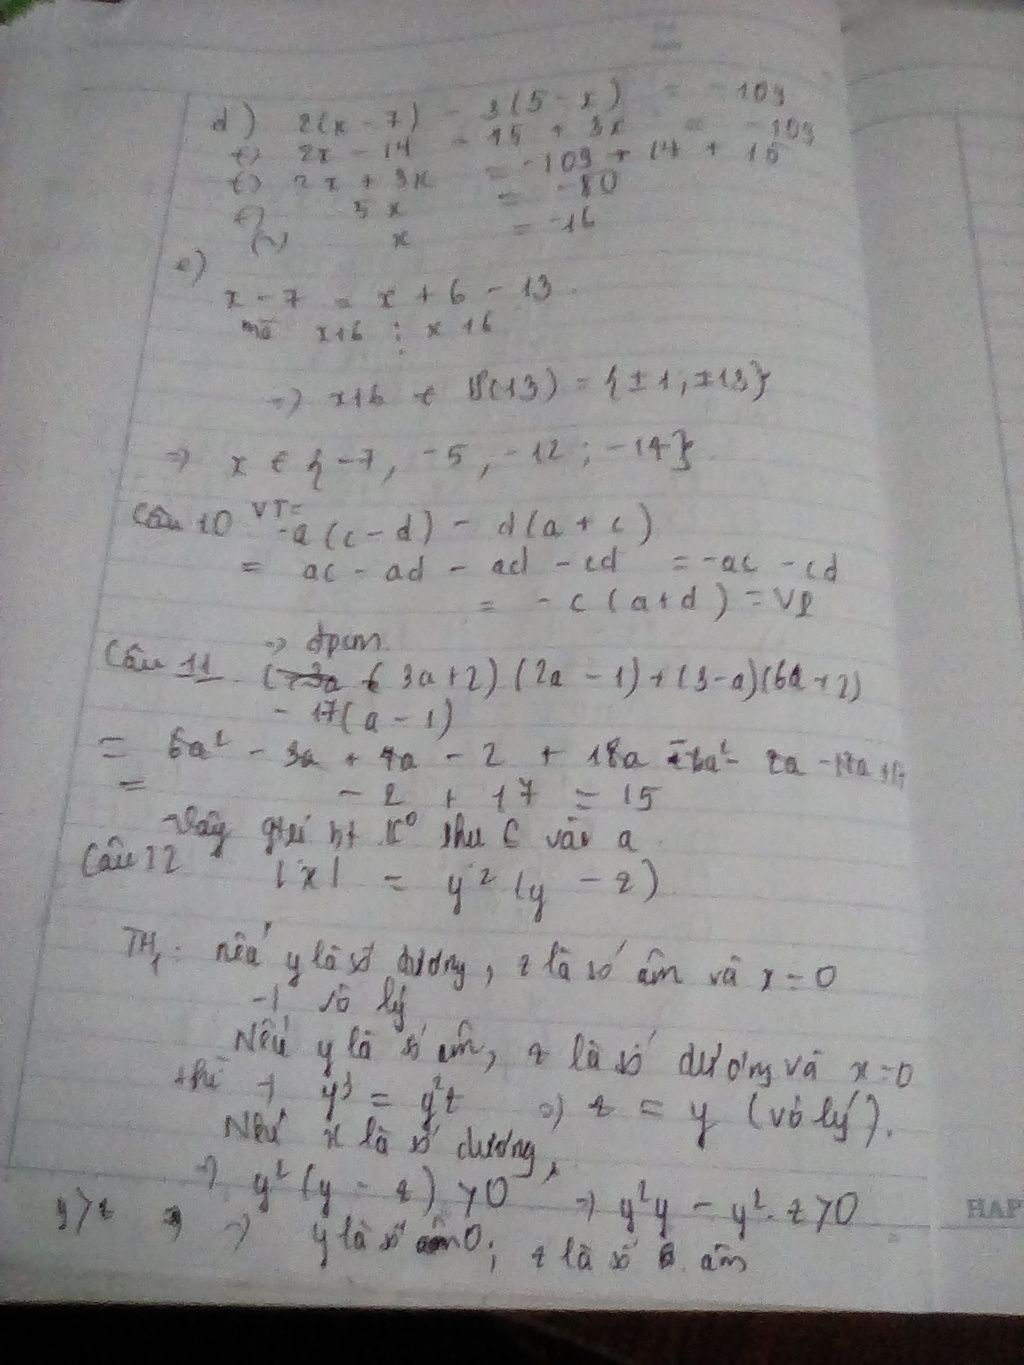 d) 2(x - 7) - 3(5 - x) = -109
<=> 2x - 14 - 15 + 3x = -109
<=> 2x + 3x = -109 + 14 + 15
<=> 5x = -80
x = -16
e)
x - 7 = x + 6 - 13
mà x+6 ⋮ x+6
=> x+6 ∈ Ư(13) = {±1, ±13}
=> x ∈ {-7, -5, -12; -14}
Câu 10 VT=
-a(c - d) - d(a + c)
= ac - ad - ad - cd = -ac - cd
= - c (a+d) = VP
=> đpcm
Câu 11 ( 3a+2) (2a - 1) + (3-a)(6a+2)
- 17(a - 1)
= 6a² - 3a + 4a - 2 + 18a - 6a² - 2a - 17a + 17
= - 2 + 17 = 15
Vậy gtrị bt K⁰ thuộc vào a
Câu 12
|x| = y² (y - z)
TH₁: nếu y là số dương, z là số âm và x = 0
vô lý
Nếu y là số âm, z là số dương và x = 0
thì y³ = y²z => z = y (vô lý).
Nếu x là số dương,
=> y² (y - z) > 0 => y²y - y². z > 0
y > z => y là số 0; z là số âm
HAP